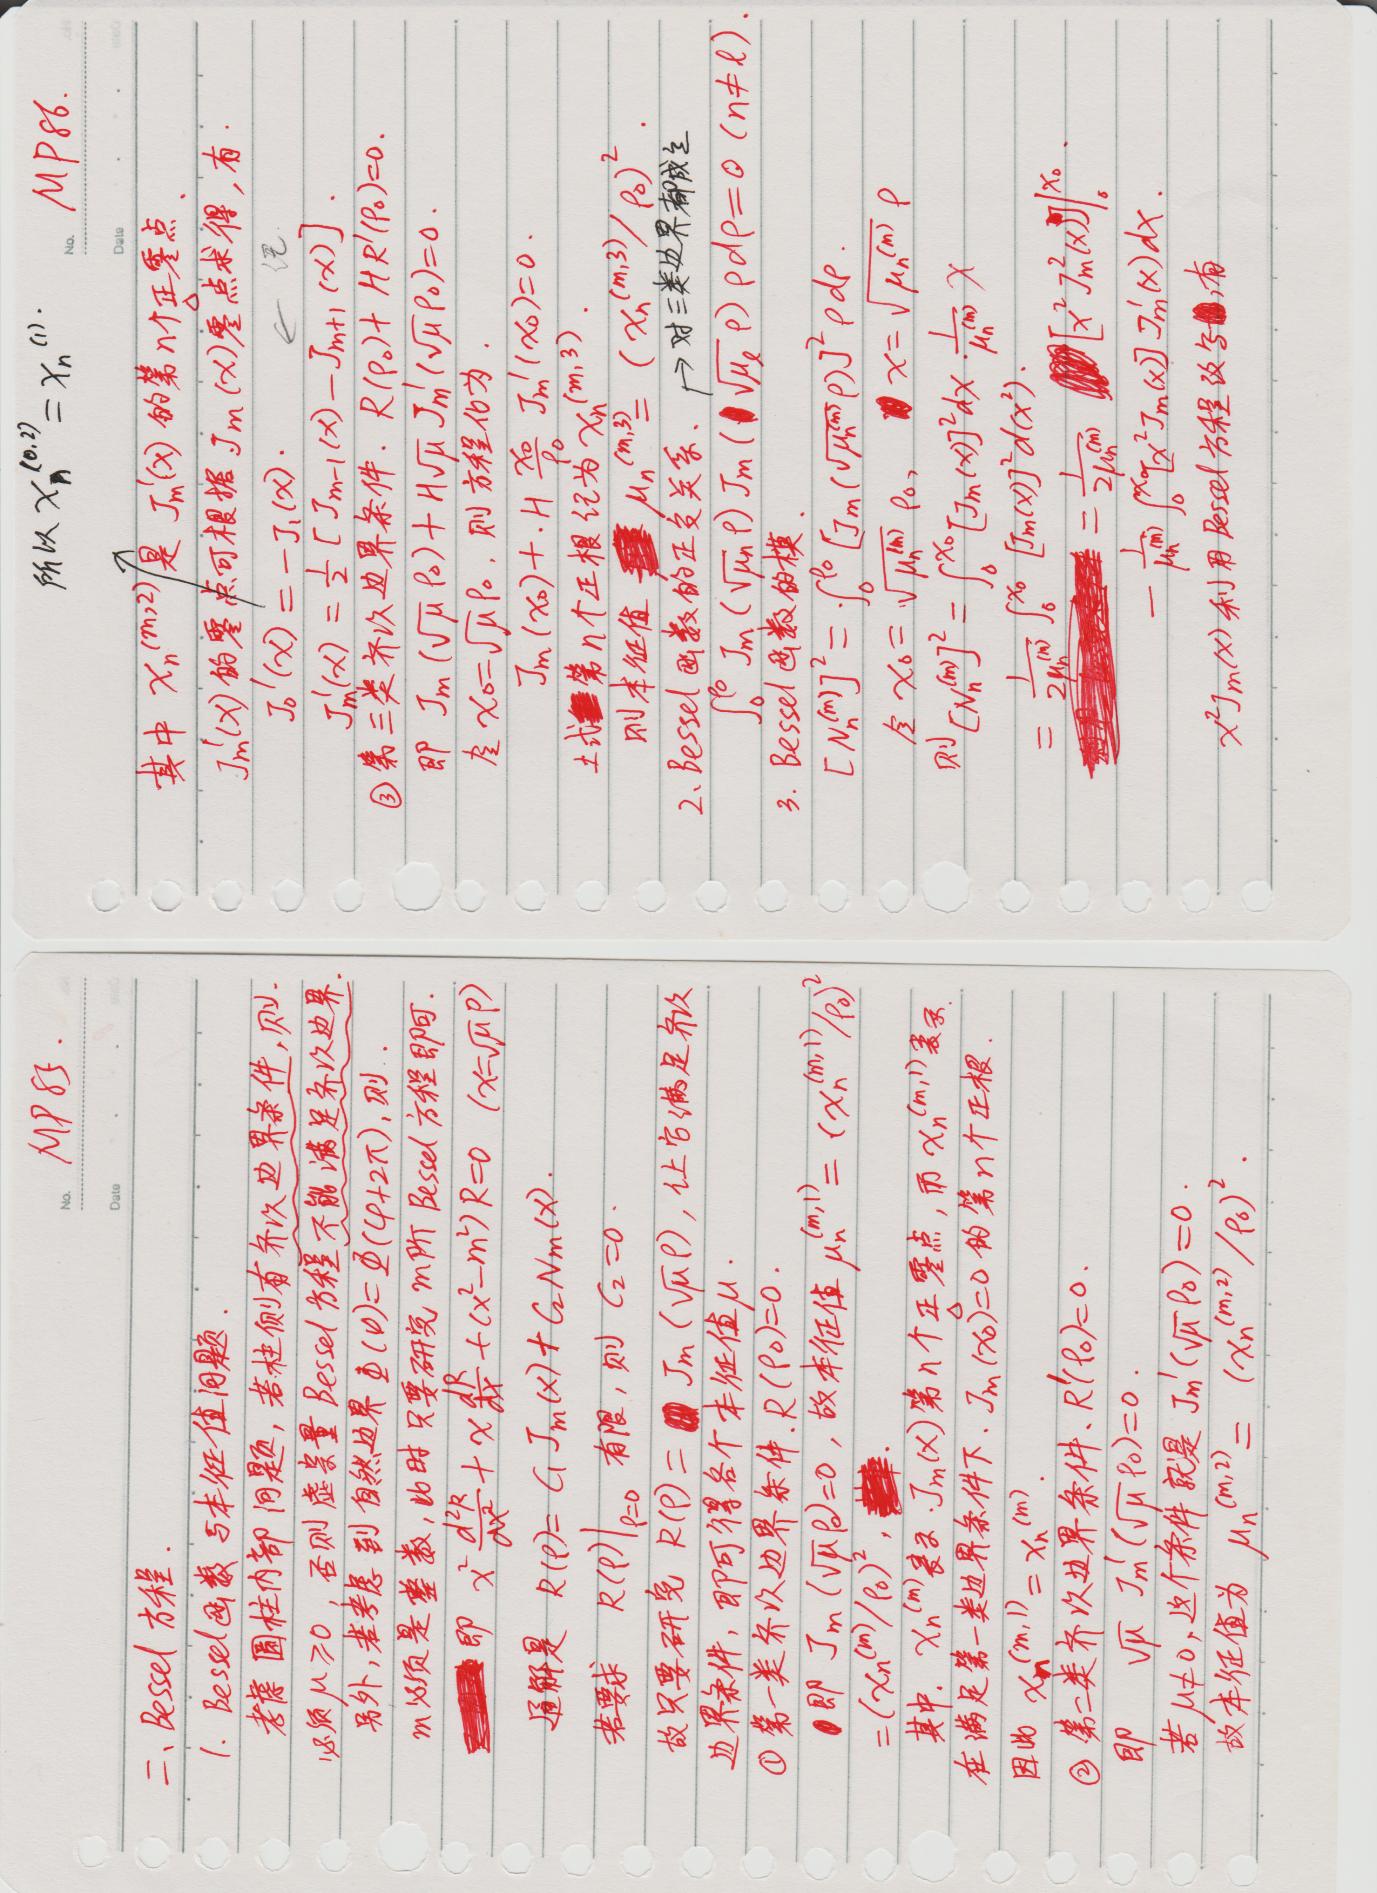 No. MP85.
Date
二、Bessel 方程.
1. Bessel函数与本征值问题.
考虑圆柱内部问题,若柱侧有齐次边界条件,则.
必须 μ≥0,否则虚宗量 Bessel 方程不能满足齐次边界.
另外,若考虑到自然边界 Φ(φ)=Φ(φ+2π),则.
m必须是整数,此时只要研究 m阶 Bessel 方程即可.
即 x² d²R/dx² + x dR/dx + (x²-m²)R=0 (x=√μ ρ)
通解是 R(ρ)= C₁ Jm(x)+C₂Nm(x).
若要求 R(ρ)|ρ=0 有限,则 C₂=0.
故只要研究 R(ρ)= Jm(√μ ρ),让它满足齐次
边界条件,即可得各个本征值μ.
① 第一类齐次边界条件.R(ρ₀)=0.
即 Jm(√μρ₀)=0,故本征值 μn^(m,1) = (xn^(m,1)/ρ₀)²
=(xn^(m)/ρ₀)²,.
其中.xn^(m)表示.Jm(x)第n个正零点,而 xn^(m,1)表示.
在满足第一类边界条件下.Jm(x₀)=0的第n个正根.
因此 xn^(m,1)=xn^(m).
② 第二类齐次边界条件.R'(ρ₀)=0.
即 √μ Jm'(√μ ρ₀)=0.
若 μ≠0,这个条件就是 Jm'(√μ ρ₀)=0.
故本征值为 μn^(m,2) = (xn^(m,2)/ρ₀)².
所以 xn^(0,2) = xn^(1).
No. MP86.
Date
其中 xn^(m,2) 是 Jm'(x) 的第n个正零点.
Jm'(x)的零点可根据 Jm(x)零点求得,有.
J₀'(x)=-J₁(x). ← 记.
Jm'(x) = ½[Jm-1(x)-Jm+1(x)].
③ 第三类齐次边界条件. R(ρ₀)+HR'(ρ₀)=0.
即 Jm(√μ ρ₀)+H√μ Jm'(√μ ρ₀)=0.
令 x₀=√μ ρ₀,则方程化为.
Jm(x₀)+.H x₀/ρ₀ Jm'(x₀)=0.
上式第n个正根记为 xn^(m,3).
则本征值 μn^(m,3)= (xn^(m,3)/ρ₀)².
2、Bessel函数的正交关系. → 对三类边界都成立
∫₀^ρ₀ Jm(√μn ρ) Jm(√μℓ ρ) ρdρ=0 (n≠ℓ).
3. Bessel函数的模.
[Nn^(m)]² = ∫₀^ρ₀ [Jm(√μn^(m) ρ)]² ρdρ.
令 x₀=√μn^(m) ρ₀, x=√μn^(m) ρ
则 [Nn^(m)]² = ∫₀^x₀ [Jm(x)]²dx · 1/μn^(m) x
= 1/2μn^(m) ∫₀^x₀ [Jm(x)]²d(x²).
= 1/2μn^(m) [x² Jm²(x)]|₀^x₀.
- 1/μn^(m) ∫₀^x₀[x²Jm(x)] Jm'(x)dx.
x²Jm(x)利用Bessel方程改写,有